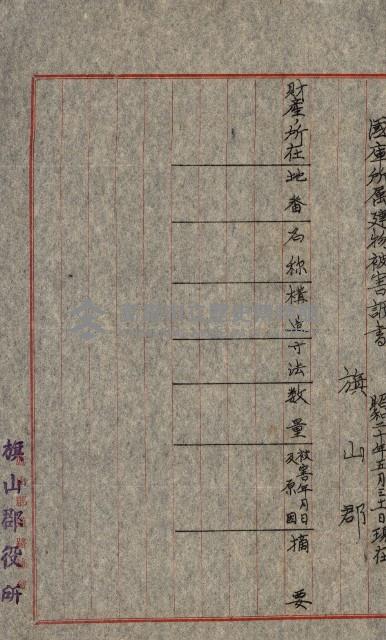 國庫所屬建物被害調書
昭和二十年五月三十一日現在
旗山郡
財產ノ所在
地番
名称
構造
寸法
數量
被害年月日
及原因
摘要
旗山郡役所